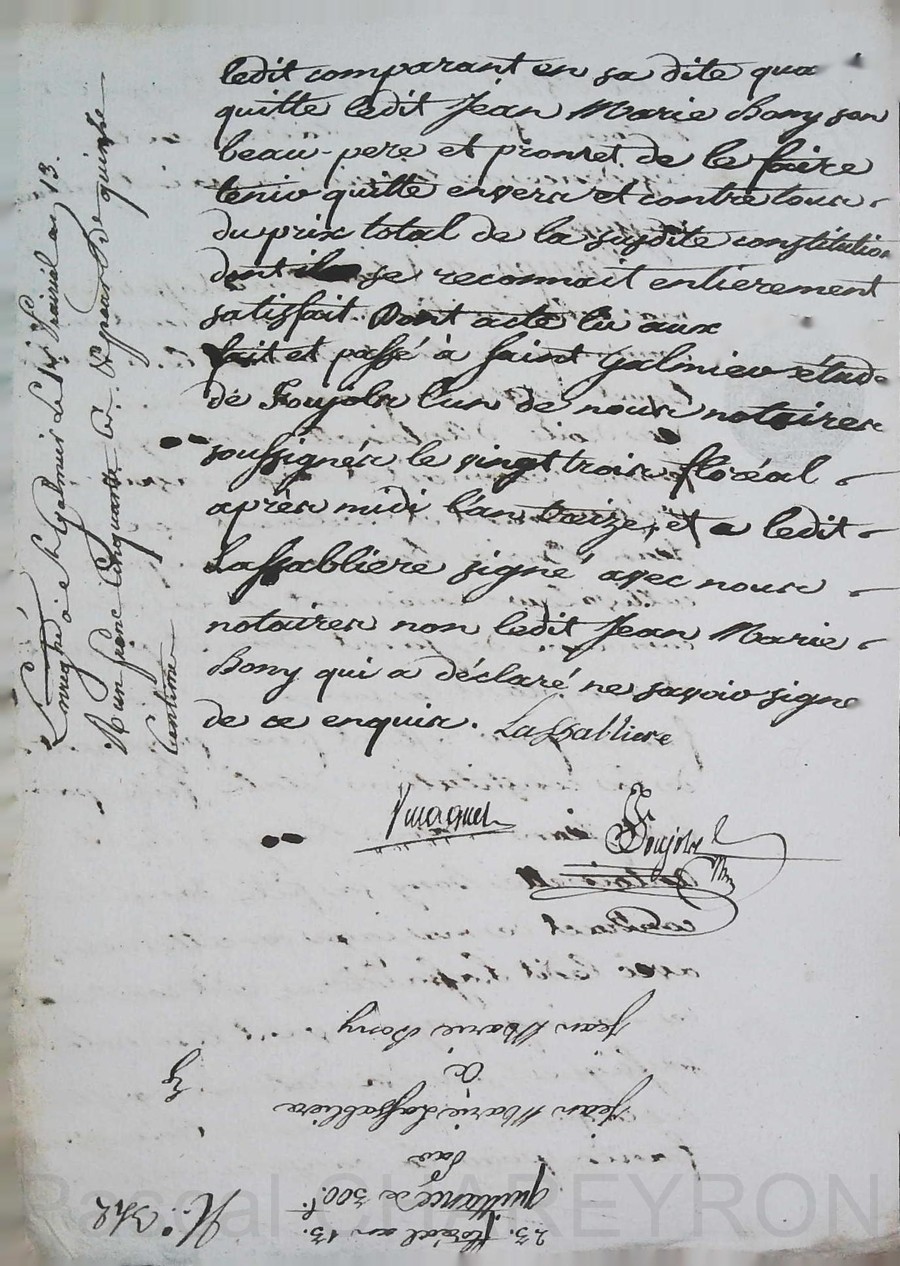 ledit comparant en sa dite qua
quitte ledit Jean Marie Bony son
beau-pere et promet de le faire
tenir quitte envers et contre tous
du prix total de la susdite constitution
dont il se reconnait entierement
satisfait. Dont acte lu aux
fait et passé à Saint Galmier étude
de Foujols l'un de nous notaires
soussignés le vingt trois floréal
après midi l'an treize, et a ledit
Lassabliere signé avec nous
notaires non ledit Jean Marie
Bony qui a déclaré ne savoir signe
de ce enquis. Lassabliere
Foujols
Enregistré à St Galmier le Prairial an 13.
R un franc cinquante c. & pour de quinze
Centimes
23. floréal an 13.
quittance de 300 f.
par
Jean Marie Lassabliere
à
Jean Marie Bony
Pascal CHAREYRON